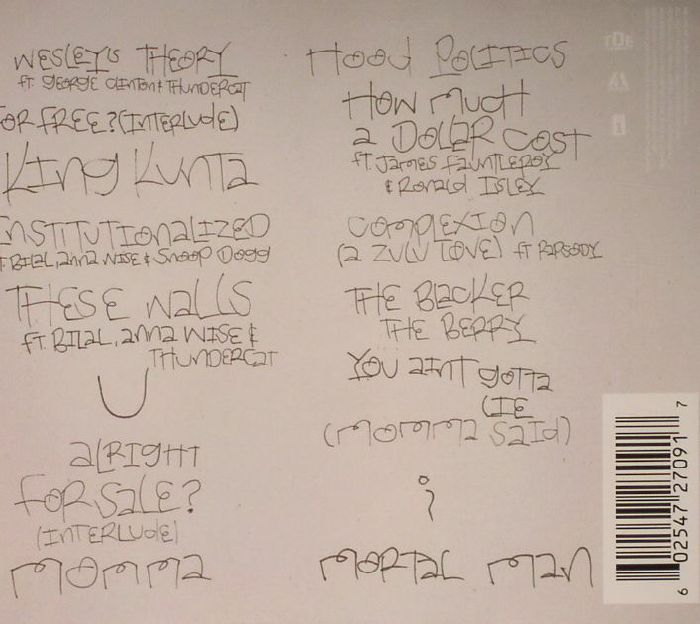 WESLEY'S THEORY
ft. GEORGE CLINTON & THUNDERCAT
FOR FREE? (INTERLUDE)
KING KUNTA
INSTITUTIONALIZED
FT BILAL, ANNA WISE & SNOOP DOGG
THESE WALLS
ft. BILAL, ANNA WISE &
THUNDERCAT
U
ALRIGHT
FOR SALE?
(INTERLUDE)
MOMMA
HOOD POLITICS
HOW MUCH
A DOLLAR COST
ft. JAMES FAUNTLEROY
& RONALD ISLEY
COMPLEXION
(A ZULU LOVE) ft RAPSODY
THE BLACKER
THE BERRY
YOU AINT GOTTA
LIE
(MOMMA SAID)
i
MORTAL MAN
TDE
6 02547 27091 7